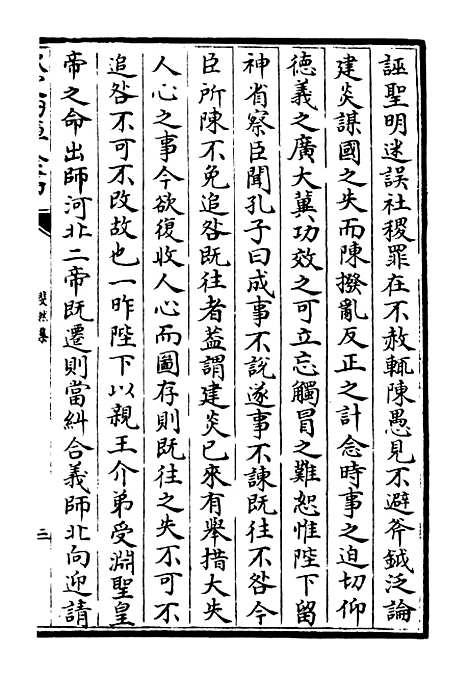 誣聖明迷誤社稷罪在不赦輒陳愚見不避斧鉞泛論
建炎謀國之失而陳撥亂反正之計念時事之迫切仰
德義之廣大冀功效之可立忘觸冒之難恕惟陛下留
神省察臣聞孔子曰成事不說遂事不諫既往不咎今
臣所陳不免追咎既往者葢謂建炎已來有舉措大失
人心之事今欲復收人心而圖存則既往之失不可不
追咎不可不改故也一昨陛下以親王介弟受淵聖皇
帝之命出師河北二帝既遷則當糾合義師北向迎請
斐然集
三